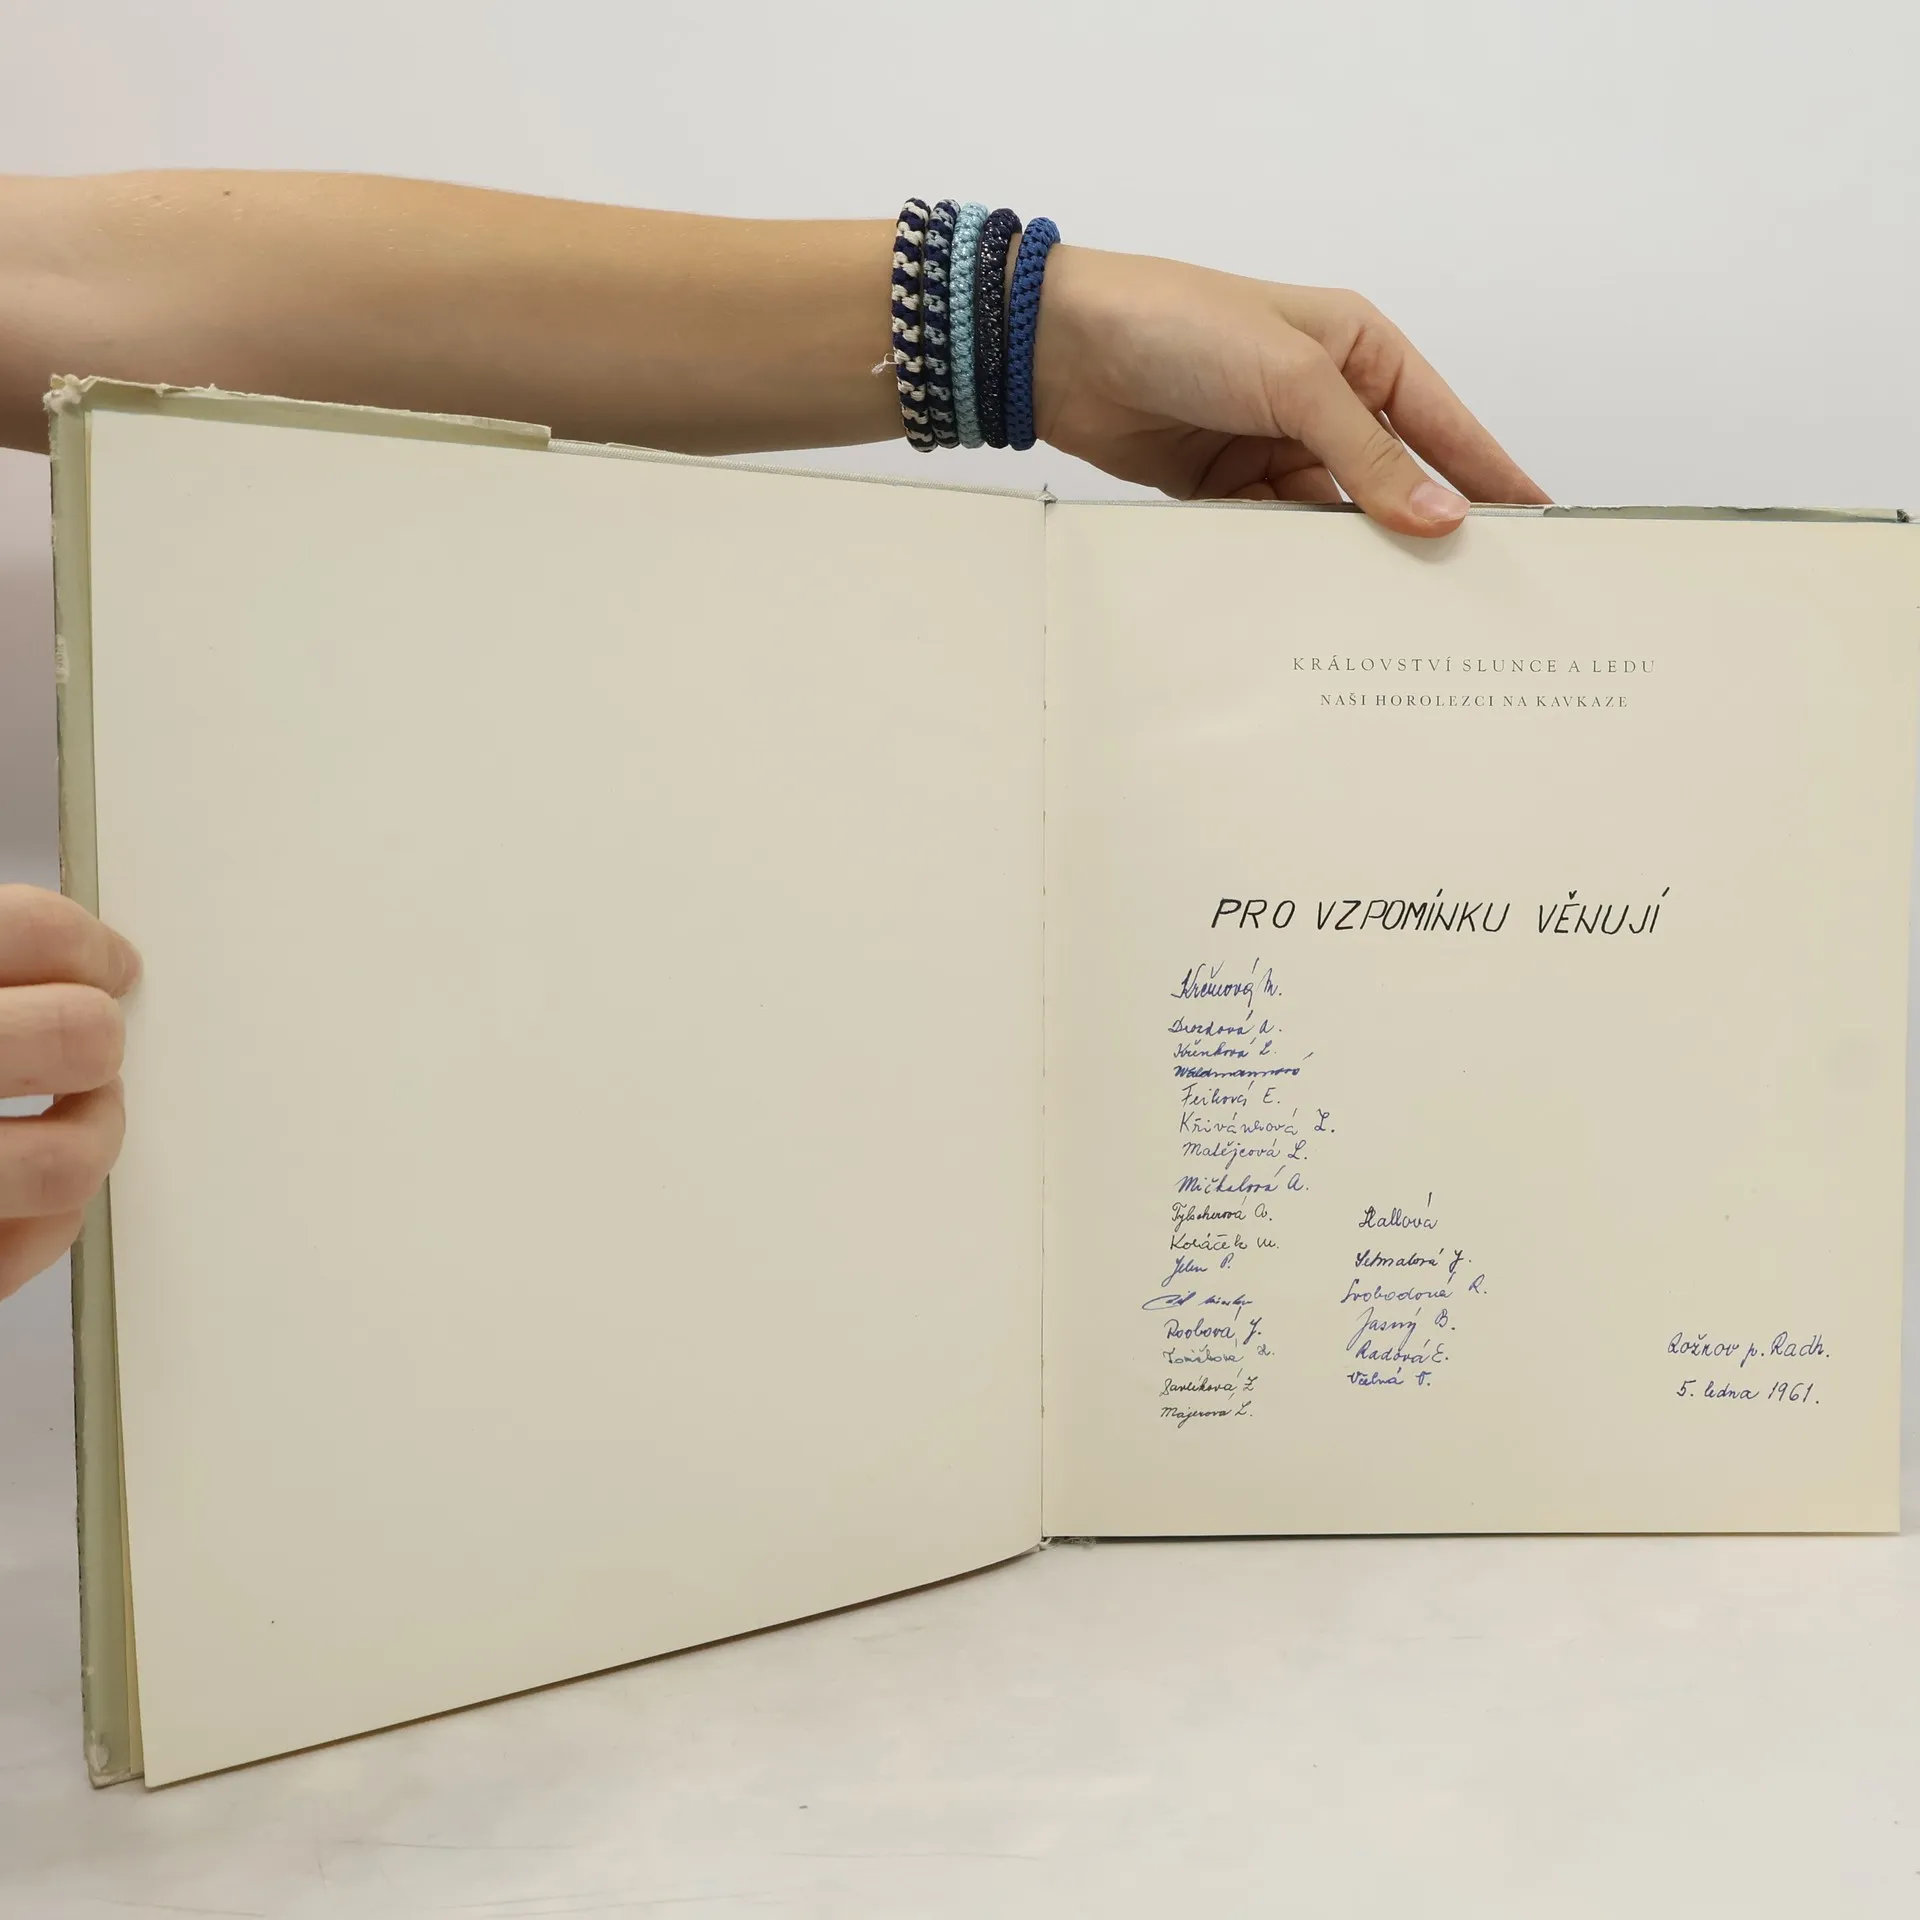 KRÁLOVSTVÍ SLUNCE A LEDU
NAŠI HOROLEZCI NA KAVKAZE
PRO VZPOMÍNKU VĚNUJÍ
M.
Drozdová A.
Křenková L.
Waldmannová
E.
Křivánková L.
Matějcová L.
Mičkalová A.
Tylscherová A.
Koláček M.
Jelen P.
Roobová J.
Pavlíková Z
Majerova L.
Hallová
Schmalová J.
Svobodová R.
Jasný B.
Radová E.
V.
Rožnov p. Radh.
5. ledna 1961.